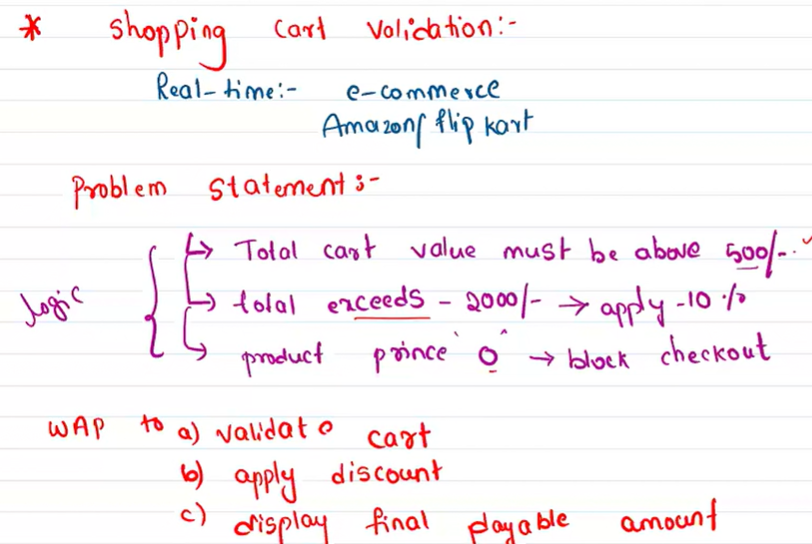 * Shopping Cart Volidation:-
Real-time:- e-commerce
Amazon/flipkart
Problem statement:-
Total cart value must be above 500/-. ✓
logic
total exceeds - 2000/- → apply -10 %
product prince '0' → block checkout
WAP to a) validate cart
b) apply discount
c) display final payable amount